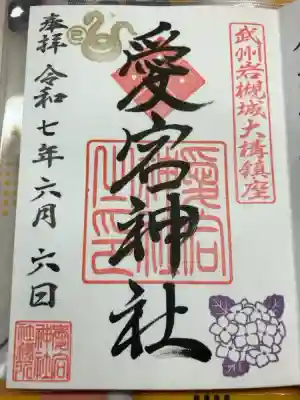 武州岩槻城大構鎮座
愛宕神社
奉拝 令和七年六月六日
巳
愛宕神社之印